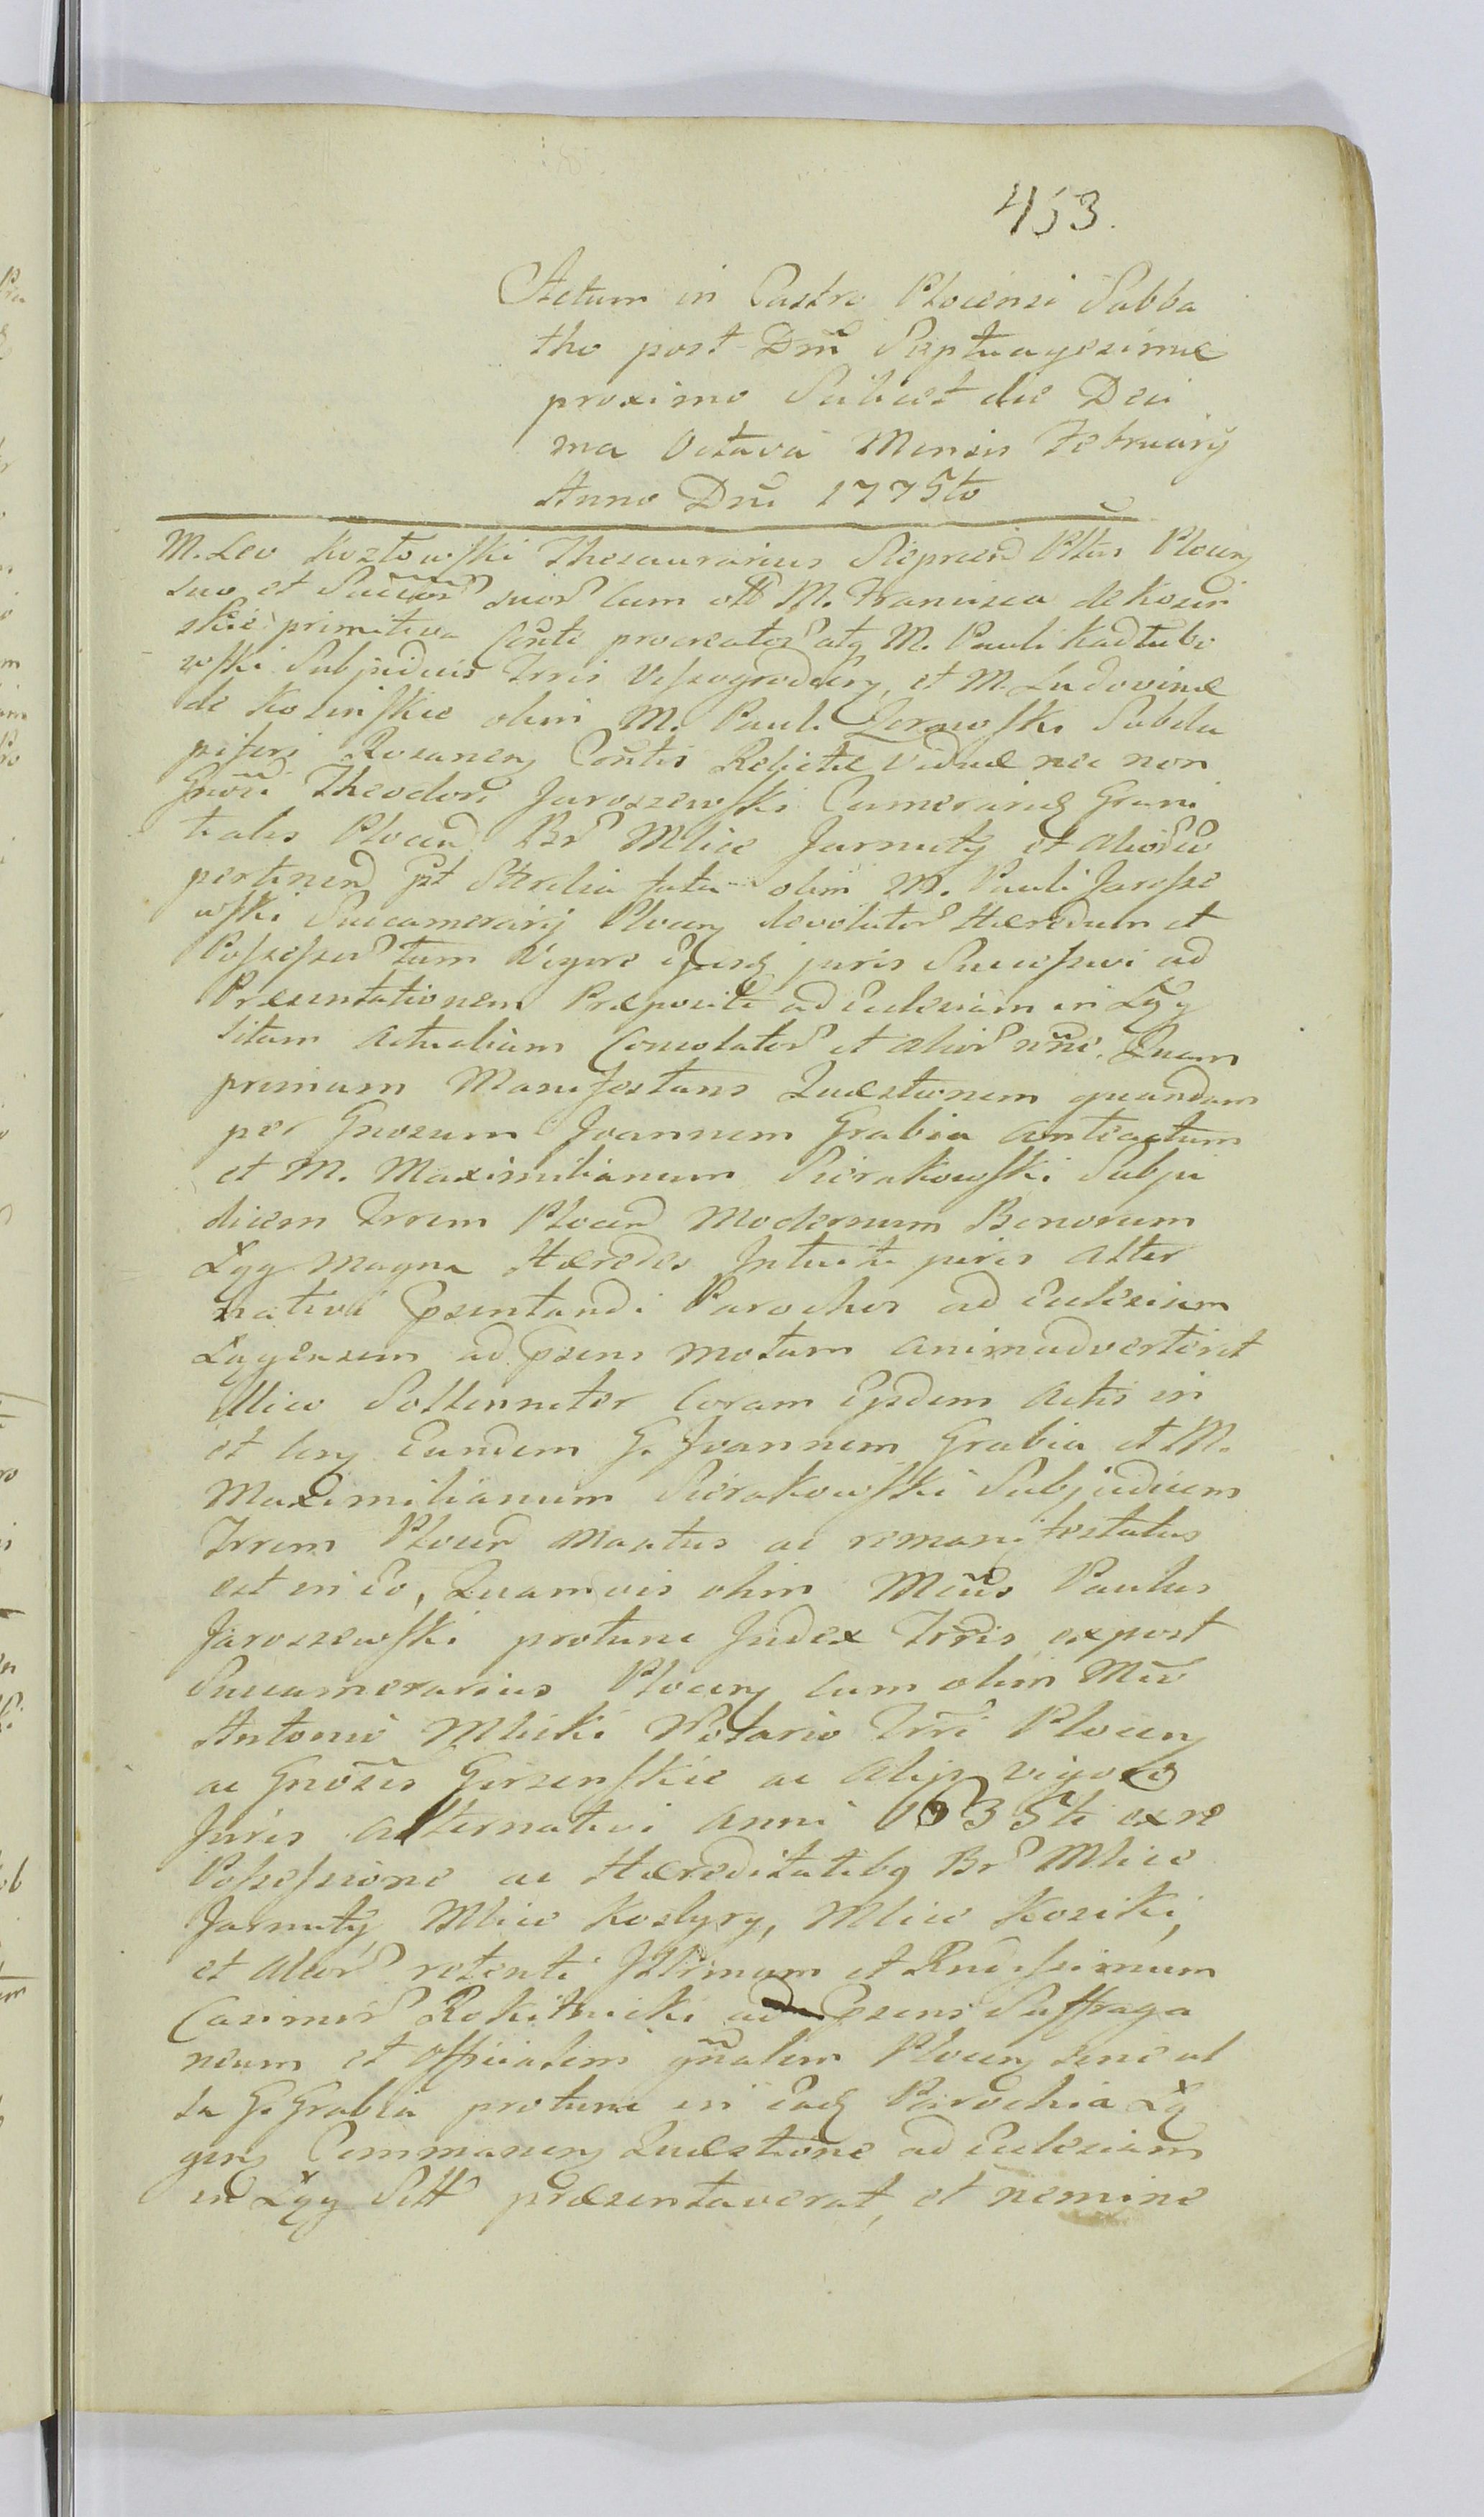 453.
Actum in Castro Plocensi Sabba
tho post Dm̃ Septuagesimæ
proximo Scilicet die Deci
ma Octava Mensis Februarij
Anno Dni 1775to
M. Leo Kozłowski Thesaurarius Sieprcen Pltus Plocen
suo et Succor suor cum olim M. Francisca de Kosin
skie primitiva Conte procreator atq M. Pauli Kadłubo
wski Subjudicis Trris Vyszogrodien, et M. Ludovinæ
de Kosinskie olim M. Pauli Zerawski Subda
piferi Rozanen Contis Relictæ Viduæ nec non
Gnosi Theodori Jaroszewski Camerarij Grani
tialis Plocen Br Mlice Jarnuty et alior eo
pertinen pst Sterilia fata olim M. Pauli Jarosze
wski Succamerarij Plocen devolutor Hæredum et
Possessor tum Vigore Ejusd juris Successivi ad
Præsentationem Præpositi ad Ecclesiam in Łęg
sitam actualium Concolator et alior nne. Quam
primum Manifestans Quæstionem quandam
per Gnosum Joannem Grabia anteactum
et M. Maximilianum Sierakowski Subju
dicem Trrem Plocen Modernum Bonorum
Łęg Magna Hæredes Intuitu juris alter
nativi Psentandi Parochos ad Ecclesiam
Łęgensem ad Psens motam animadverterit
Illico Sollenniter Coram Eisdem Actis in
et cnq Eundem G. Joannem Grabia et M.
Maximilianum Sierakowski Subjudicem
Trrem Plocen Mastus ac remanifestatus
est in Eo, Quamvis olim Mcus Paulus
Jaroszewski protunc Judex Trris expost
Succamerarius Plocen cum olim Mco
Antonio Mlicki Notario Trri Plocen
ac Gnosis Gorzenskie ac alijs vigore
Juris Alternativi anni 1635ti ex re
Possessione ac Hæreditatibq Br Mlice
Jarnuty, Mlice Kostyry, Mlice Kosiki,
et alior retenti Jllrmum et Rndissimum
Casimir Rokitnicki ad Psens Suffraga
neum et Officialem gnalem Plocen sine ul
la G. Grabia protunc in Ead Parochia Łę
gen Commanen Quæstione ad Ecclesiam
in Łęg Sitt præsentaverat, et nemine